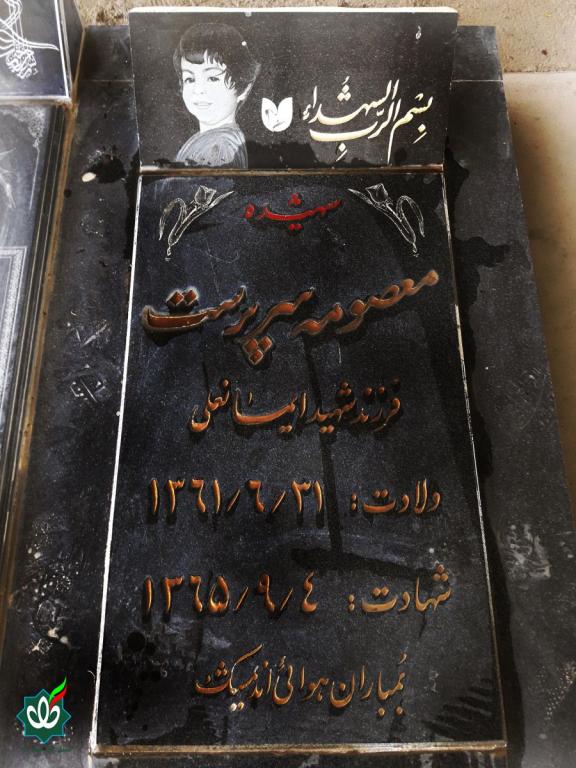 بسم الرب الشهداء
شهیده
معصومه سرپرست
فرزند شهید ایمانعلی
ولادت: ۱۳۶۱/۶/۳۱
شهادت: ۱۳۶۵/۹/۴
بمباران هوائی اندیمشک